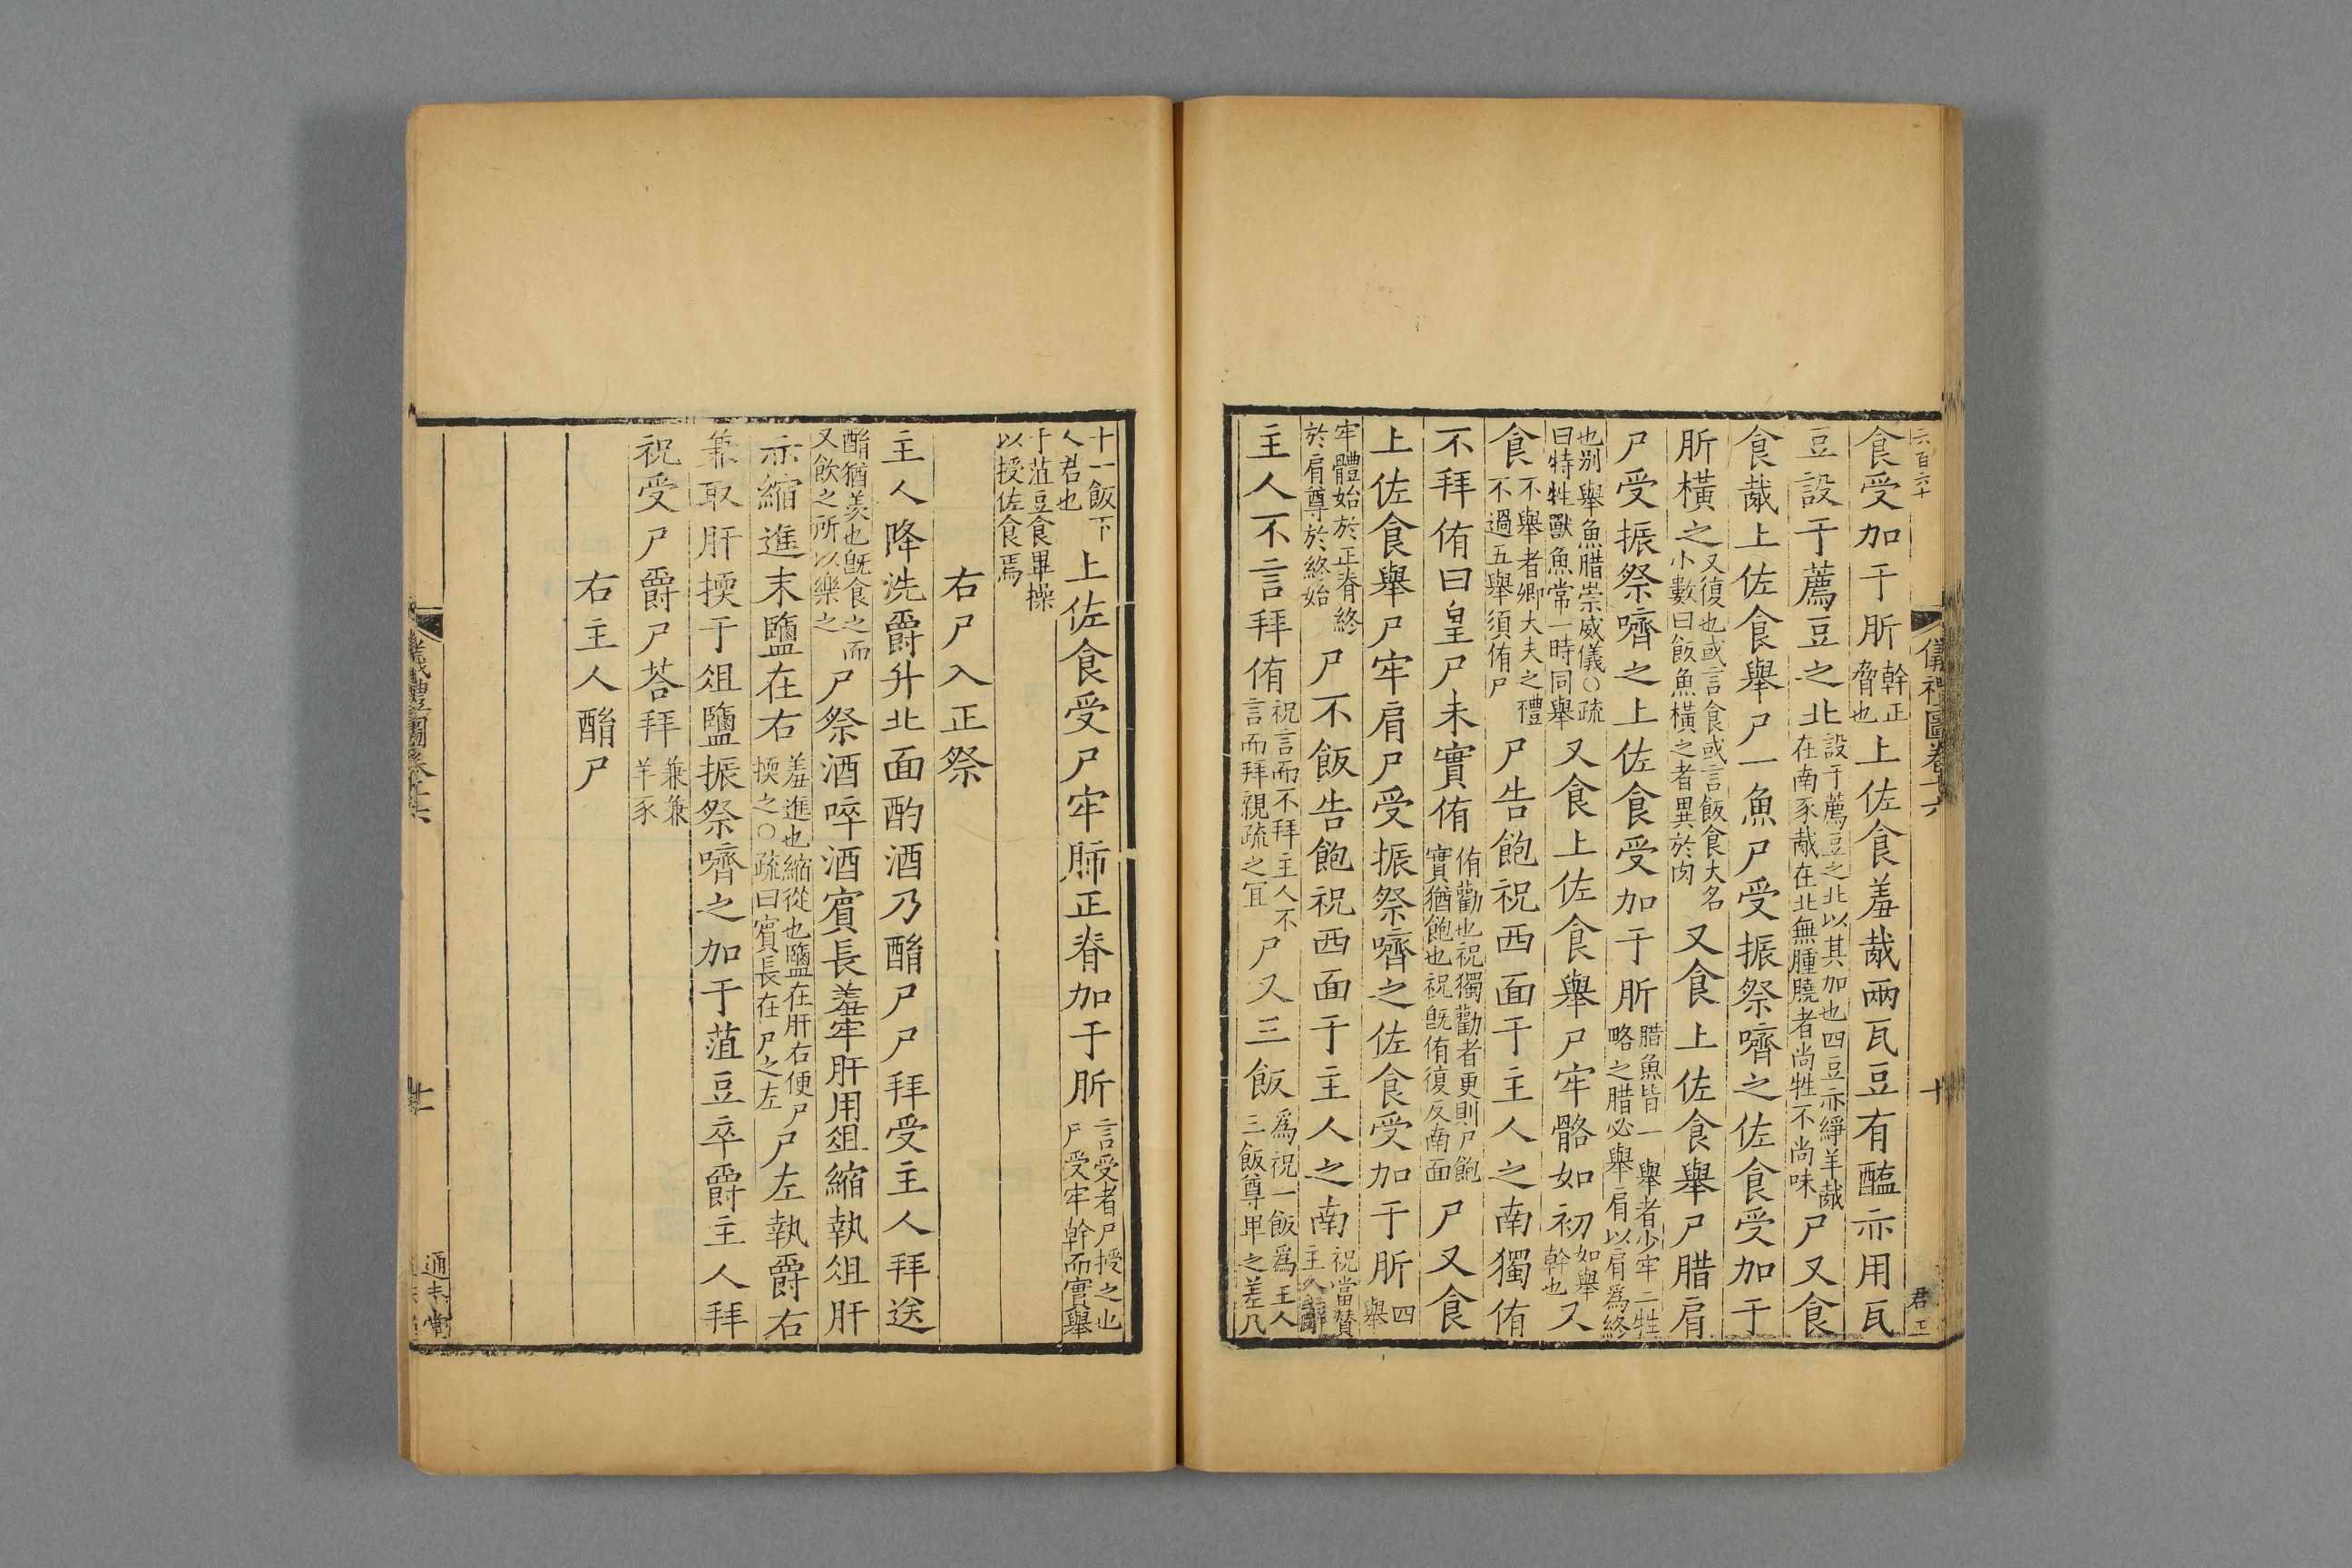 六百六十
儀禮圖卷十六
十
君工
食受加于肵幹正脅也上佐食羞胾兩瓦豆有醢亦用瓦
豆設于薦豆之北設于薦豆之北以其加也四豆亦綪羊胾在南豕胾在北無臐膮者尚牲不尚味尸又食
食胾上佐食舉尸一魚尸受振祭嚌之佐食受加于
肵橫之又復也或言食或言飯食大名小數曰飯魚橫之者異於肉又食上佐食舉尸腊肩
尸受振祭嚌之上佐食受加于肵腊魚皆一舉者少牢二牲略之腊必舉肩以肩為終
也别舉魚腊崇威儀○疏曰特牲獸魚常一時同舉又食上佐食舉尸牢骼如初如舉幹也又
食不舉者卿大夫之禮不過五舉須侑尸尸告飽祝西面于主人之南獨侑
不拜侑曰皇尸未實侑侑勸也祝獨勸者更則尸飽實猶飽也祝旣侑復反南面尸又食
上佐食舉尸牢肩尸受振祭嚌之佐食受加于肵四舉
牢體始於正脊終於肩尊於終始尸不飯告飽祝西面于主人之南祝當贊主人辭
主人不言拜侑祝言而不拜主人不言而拜親疏之宜尸又三飯爲祝一飯爲主人三飯尊卑之差凡
十一飯下人君也上佐食受尸牢肺正脊加于肵言受者尸授之也尸受牢幹而實舉
于菹豆食畢操以授佐食焉
右尸入正祭
主人降洗爵升北面酌酒乃酳尸尸拜受主人拜送
酳猶羡也旣食之而又飲之所以樂之尸祭酒啐酒賓長羞牢肝用俎縮執俎肝
亦縮進末鹽在右羞進也縮從也鹽在肝右便尸㨎之○疏曰賓長在尸之左尸左執爵右
兼取肝㨎于俎鹽振祭嚌之加于菹豆卒爵主人拜
祝受尸爵尸荅拜兼兼羊豕
右主人酳尸
儀禮圖卷十六
十一
通志堂